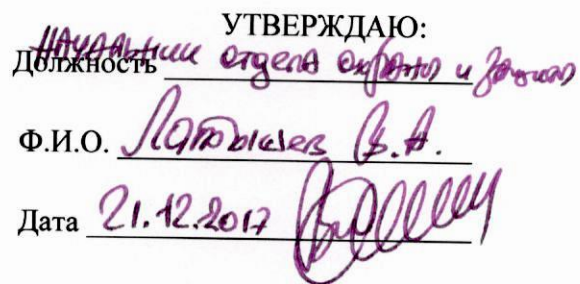 УТВЕРЖДАЮ:
Должность Начальник отдела охраны и защиты
Ф.И.О. Латышев В.А.
Дата 21.12.2017